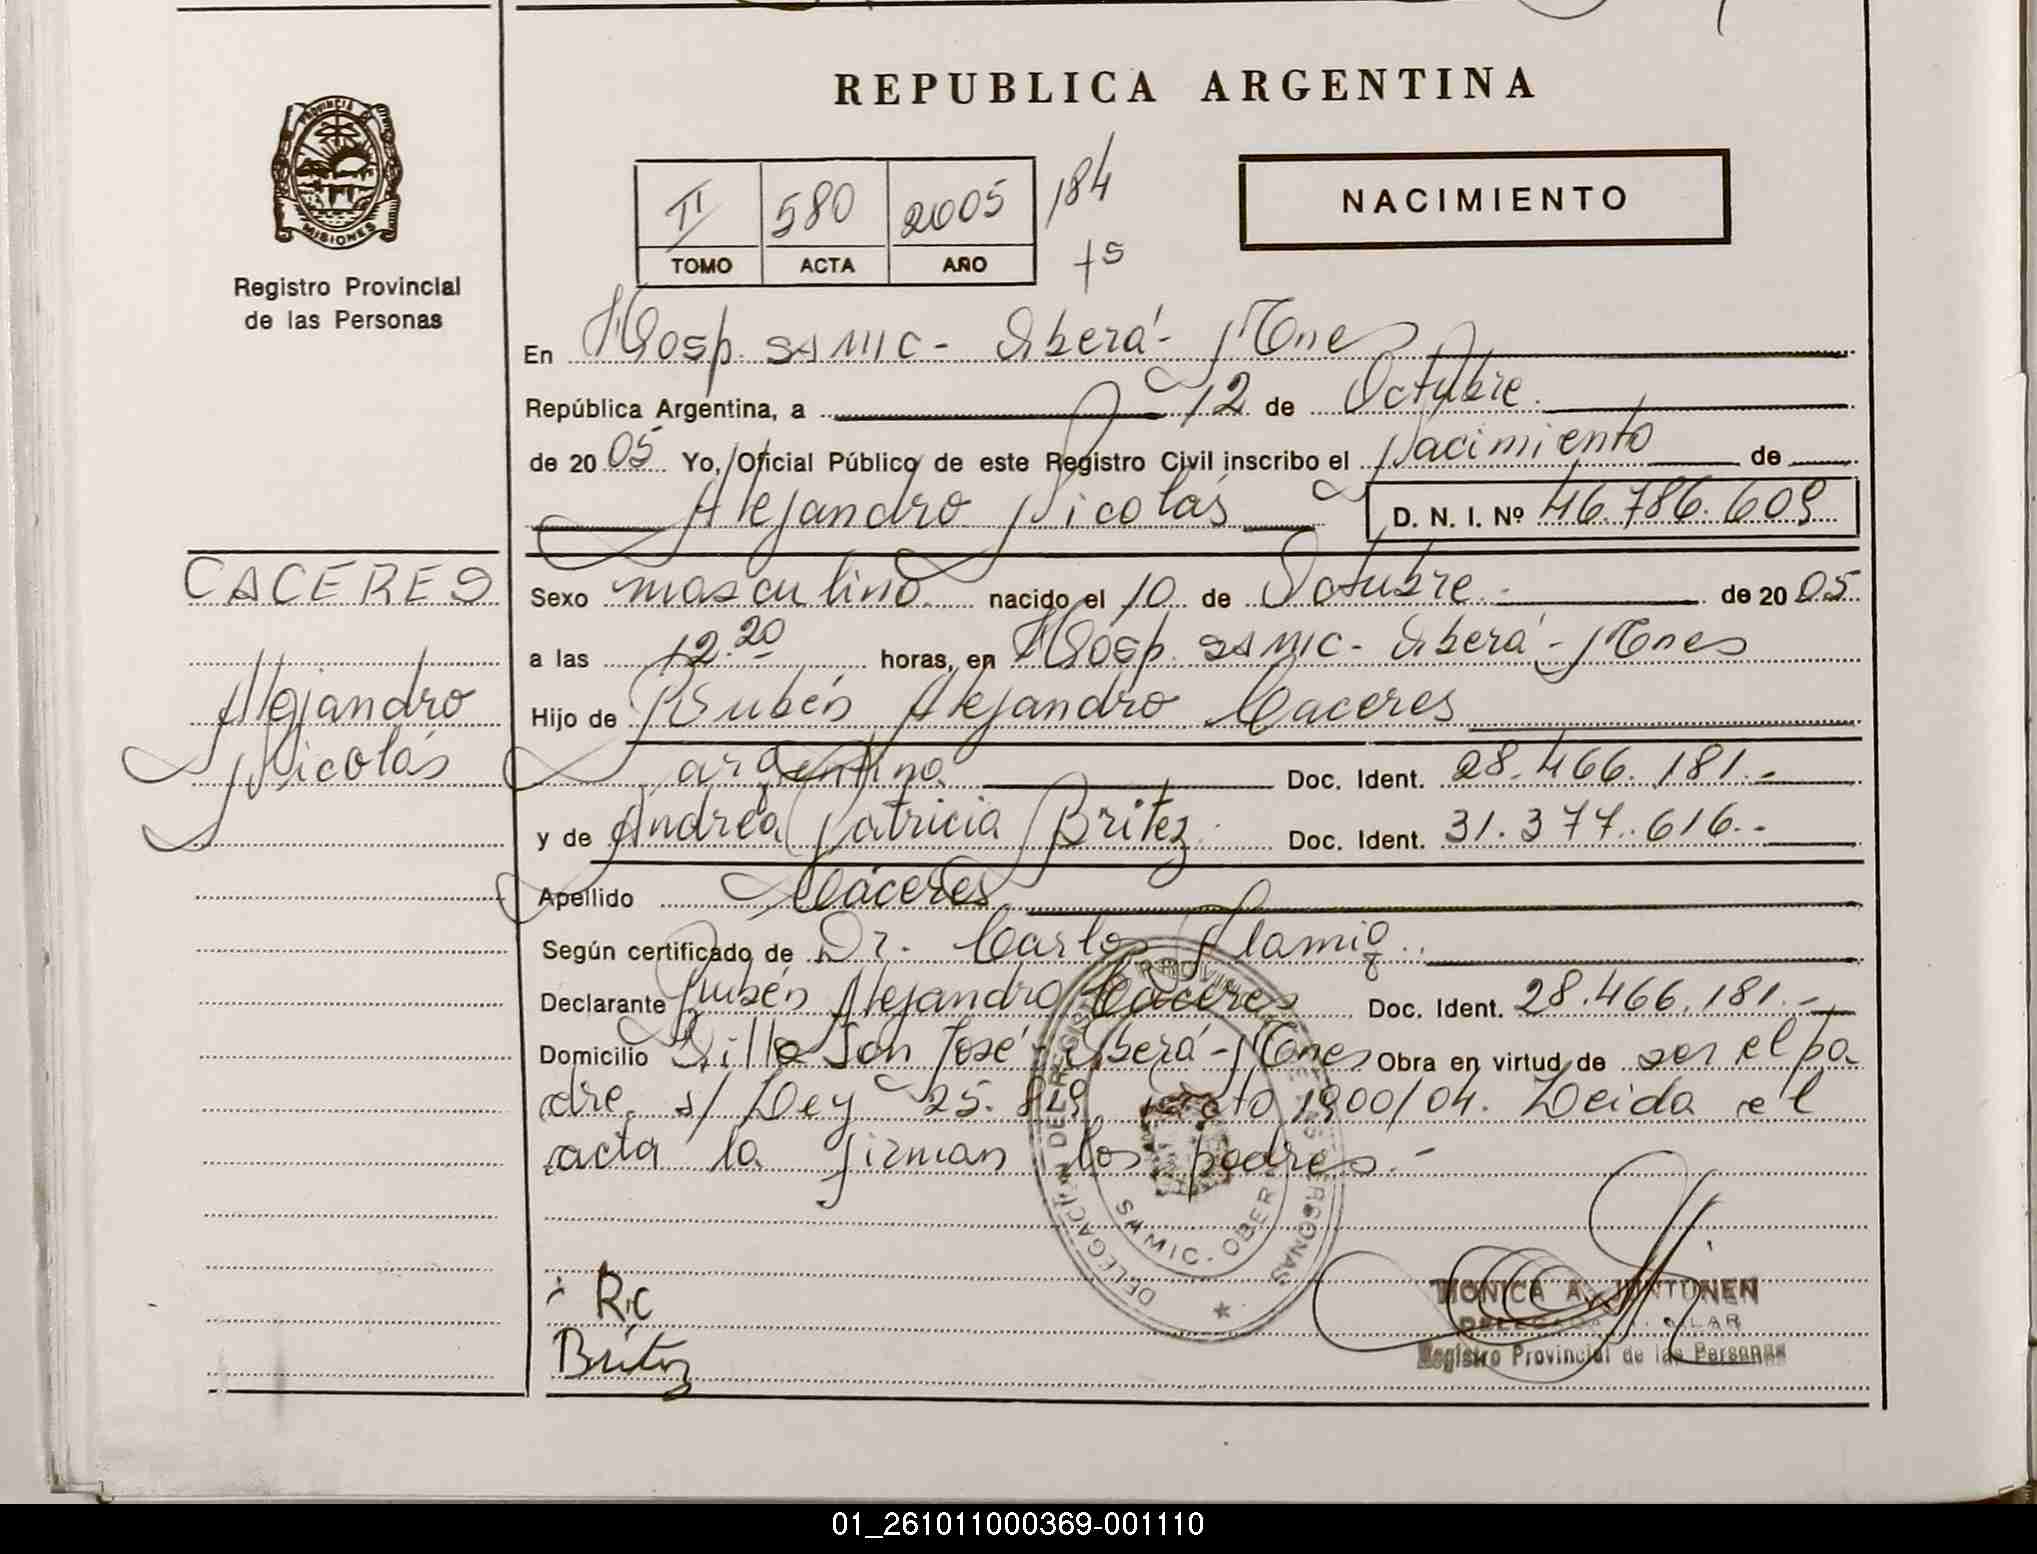 REPUBLICA ARGENTINA
PROVINCIA DE
MISIONES
Registro Provincial
de las Personas
II 580 2005 184
TOMO ACTA AÑO
NACIMIENTO
En Hosp. SAMIC - Oberá - Mnes
República Argentina, a 12 de Octubre
de 2005 Yo, Oficial Público de este Registro Civil inscribo el Nacimiento de
Alejandro Nicolás D. N. I. Nº 46.786.609
CACERES
Alejandro
Nicolás
Sexo masculino nacido el 10 de Octubre de 2005
a las 12.20 horas, en Hosp. SAMIC - Oberá - Mnes
Hijo de Rubén Alejandro Caceres
argentino Doc. Ident. 28.466.181.-
y de Andrea Patricia Britez Doc. Ident. 31.377.616.-
Apellido Cáceres
Según certificado de Dr. Carlos
Declarante Rubén Alejandro Caceres Doc. Ident. 28.466.181.-
Domicilio Villa San José - Oberá - Mnes Obra en virtud de ser el pa
dre. s/ Ley 25.819 1900/04. Leida el
acta la firman los padres.-
DELEGACIÓN DEL REGISTRO PROVINCIAL DE LAS PERSONAS
SAMIC - OBERA
R.C
Britez
MONICA A. JUNTUNEN
Registro Provincial de las Personas
01_261011000369-001110